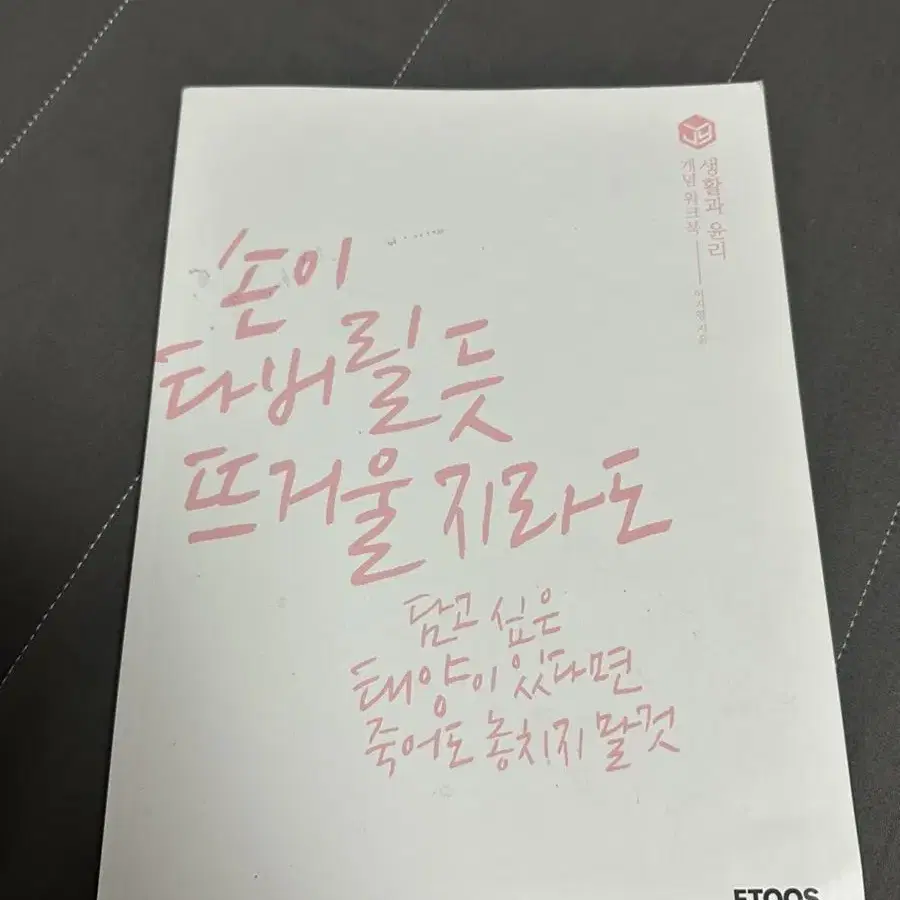 손이
타버릴 듯
뜨거울지라도
담고 싶은
태양이 있다면
죽어도 놓치지 말 것
생활과 윤리
개념 워크북
이지영 지음
ETOOS